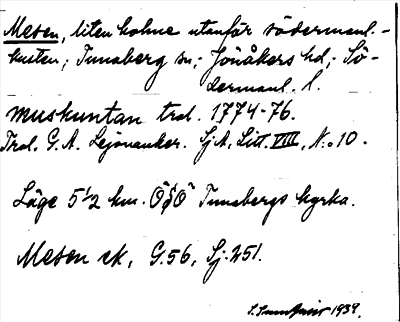 Mesen, liten holme utanför södermanl.-
kusten; Tunaberg sn; Jönåkers hd; Sö-
dermanl. l.
muskuntan trol. 1774-76.
Trol. G. A. Lejonanker. SjA, Litt. VIII, N:o 10.
Läge 5 1/2 km. ÖSÖ Tunabergs kyrka.
Mesen ek, G.56, Sj.251.
1939.